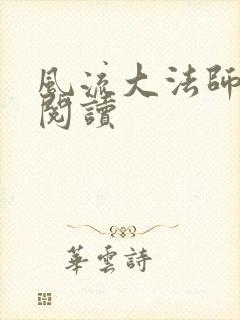 風流大法師
閱讀
華雲詩